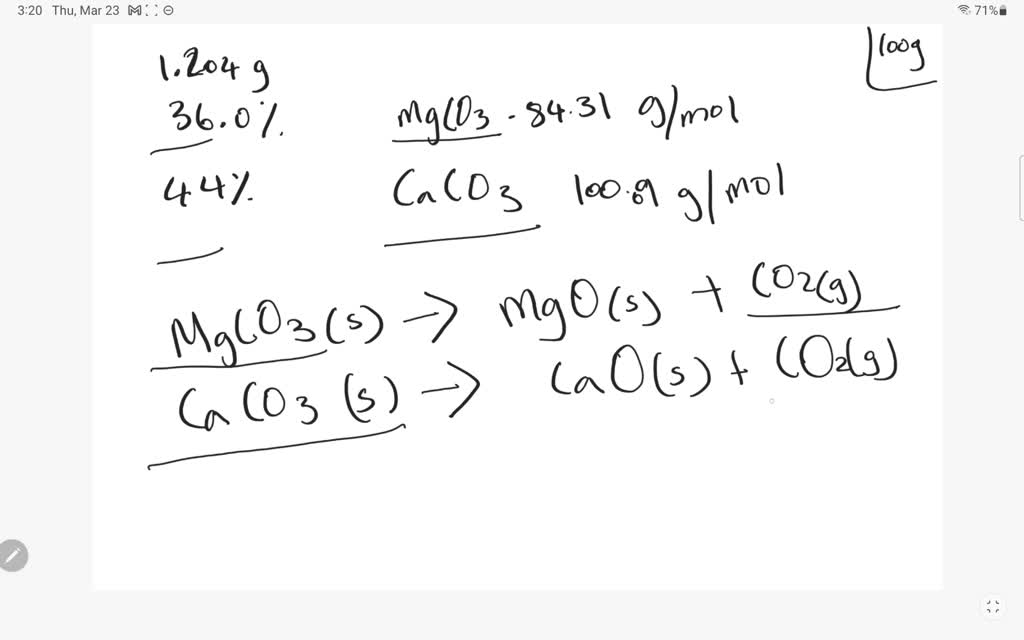 3:20 Thu, Mar 23 71%
100g
1.204 g
36.0%
MgCO3 - 84.31 g/mol
44% CaCO3 100.09 g/mol
MgCO3(s) → MgO(s) + CO2(g)
CaCO3 (s) → CaO(s) + CO2(g)